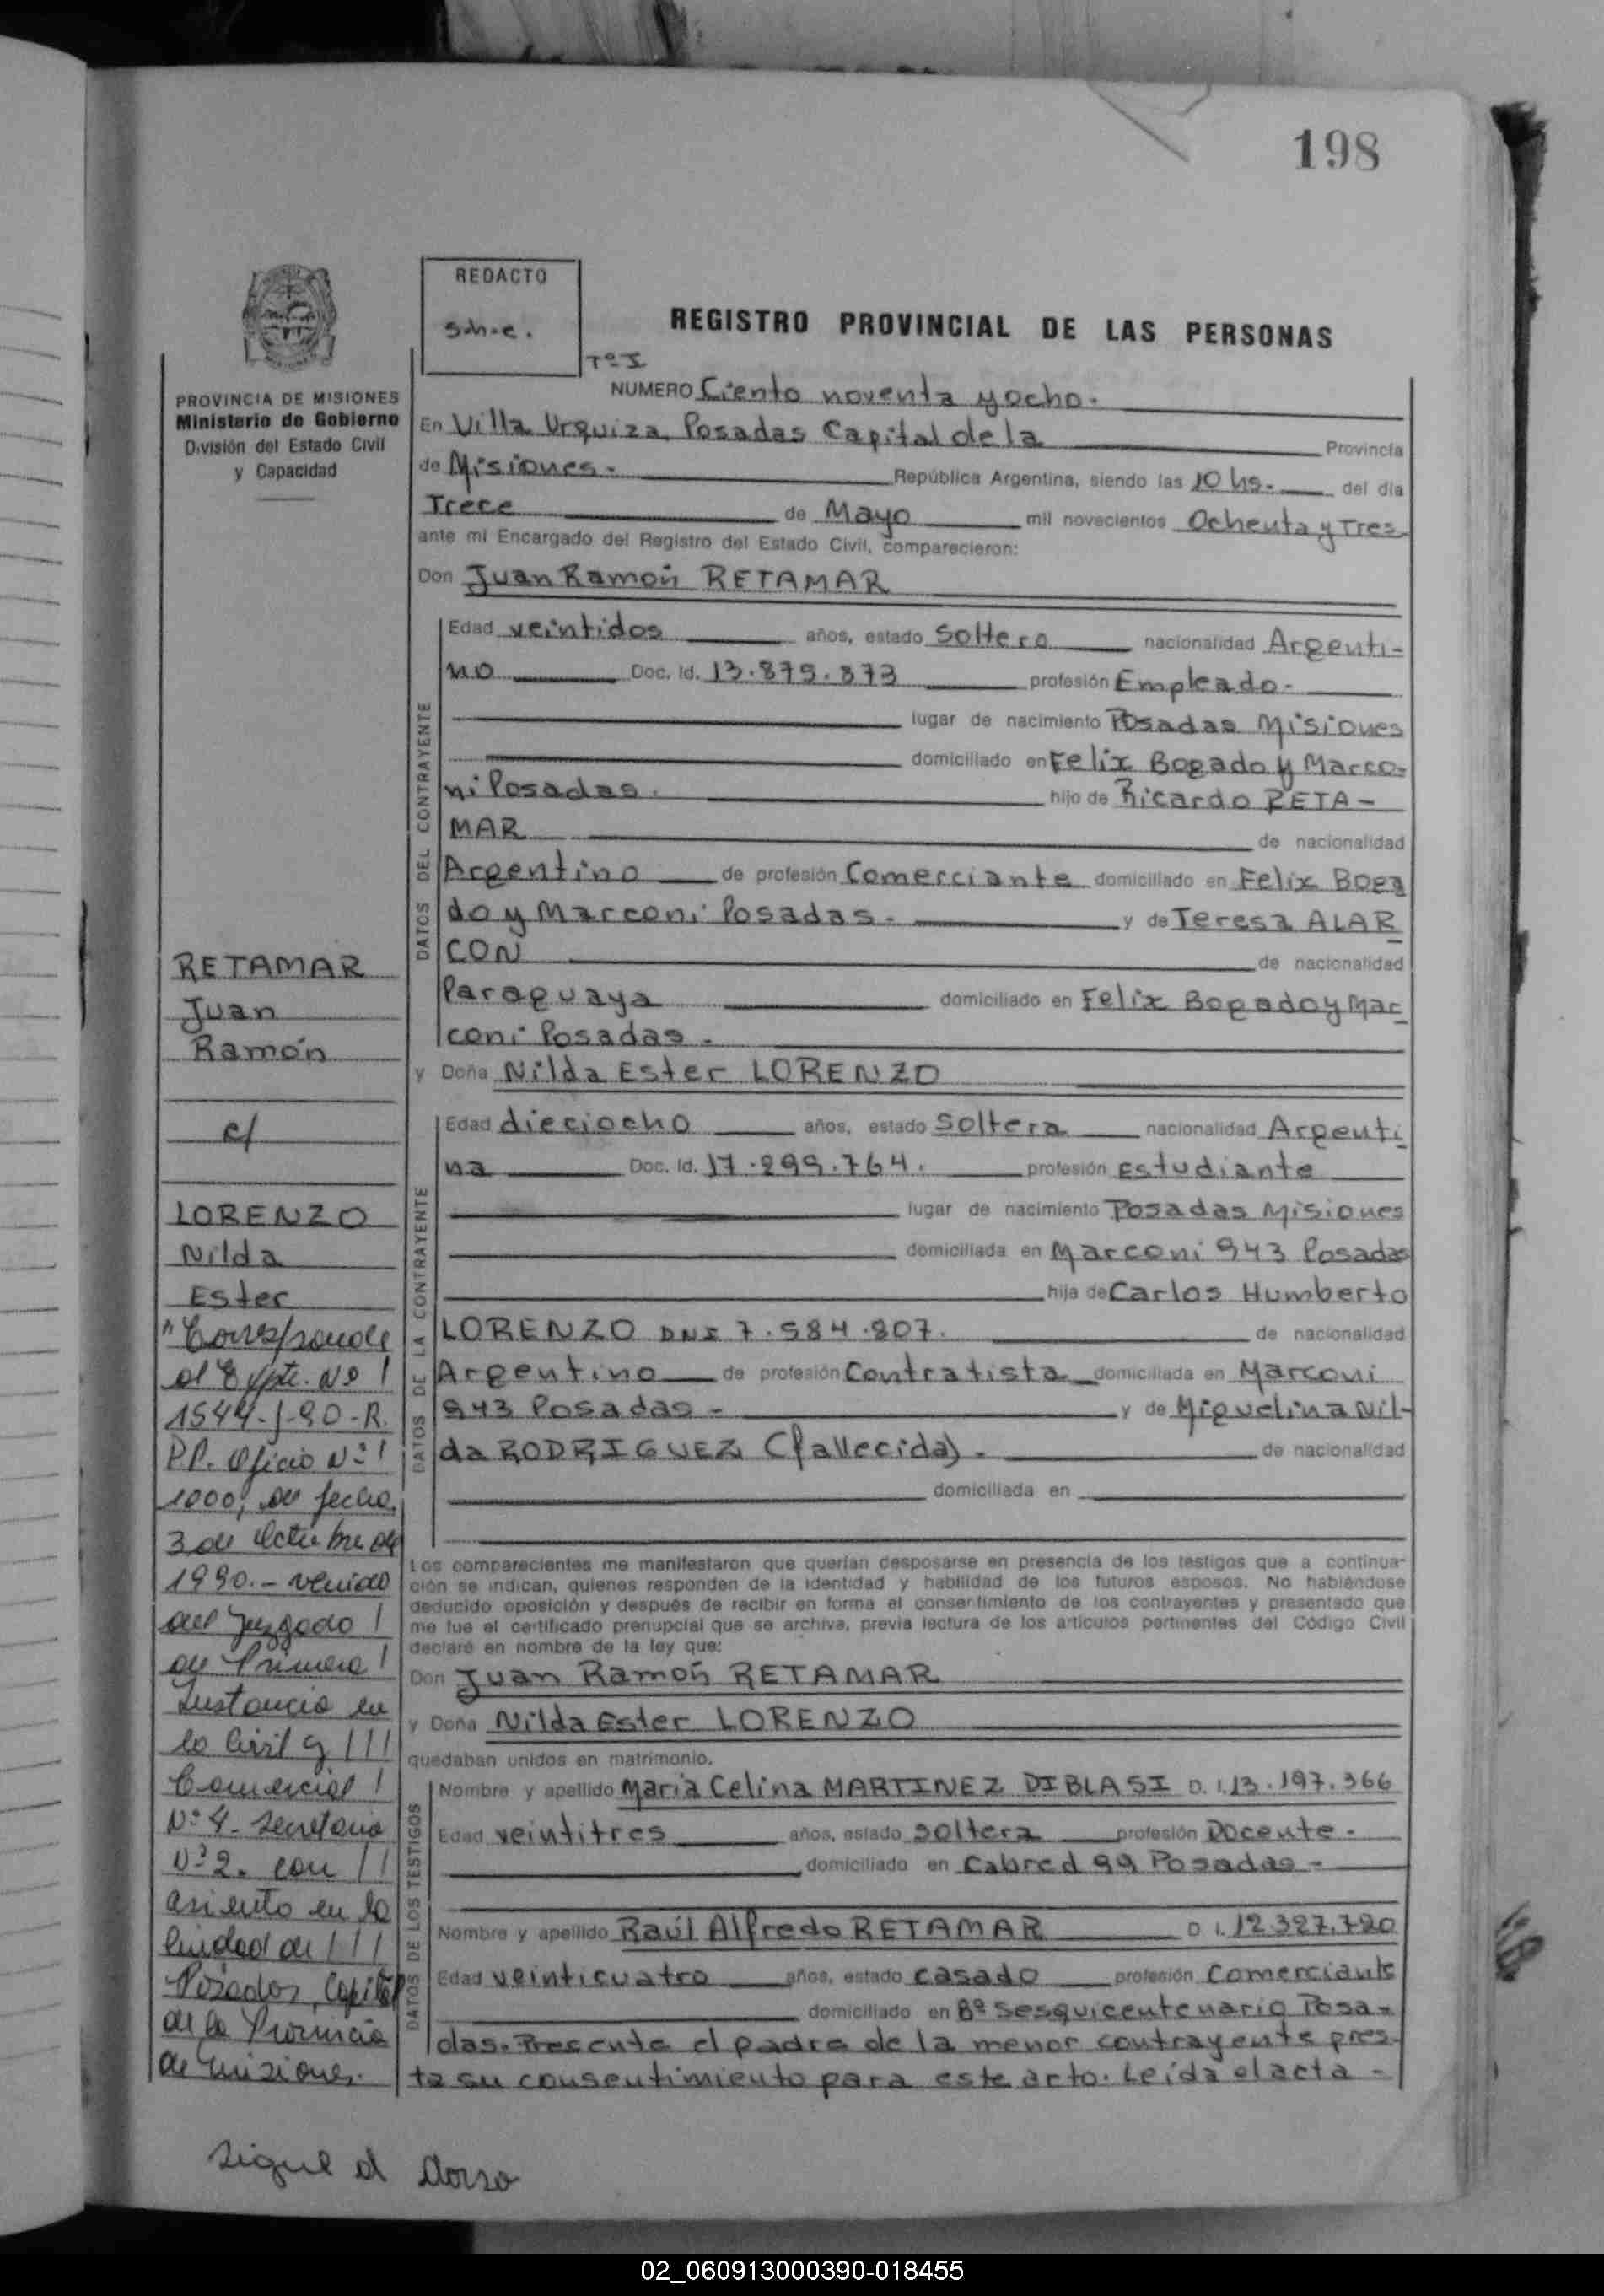 198
REDACTO
S.h.e.
REGISTRO PROVINCIAL DE LAS PERSONAS
Tº I
NUMERO Ciento noventa y ocho.
PROVINCIA DE MISIONES
Ministerio de Gobierno
División del Estado Civil
y Capacidad
En Villa Urquiza, Posadas Capital de la Provincia
de Misiones.- República Argentina, siendo las 10 hs. del día
Trece de Mayo mil novecientos Ochenta y Tres
ante mi Encargado del Registro del Estado Civil, comparecieron:
Don Juan Ramón RETAMAR
DATOS DEL CONTRAYENTE
Edad veintidos años, estado Soltero nacionalidad Argenti-
no Doc. Id. 13.879.873 profesión Empleado.-
lugar de nacimiento Posadas Misiones
domiciliado en Felix Bogado y Marco-
ni Posadas. hijo de Ricardo RETA-
MAR de nacionalidad
Argentino de profesión Comerciante domiciliado en Felix Boga
do y Marconi Posadas.- y de Teresa ALAR
CON de nacionalidad
Paraguaya domiciliado en Felix Bogado y Mar
coni Posadas.-
y Doña Nilda Ester LORENZO
DATOS DE LA CONTRAYENTE
Edad dieciocho años, estado Soltera nacionalidad Argenti
na Doc. Id. 17.899.764. profesión Estudiante
lugar de nacimiento Posadas Misiones
domiciliada en Marconi 943 Posadas
hija de Carlos Humberto
LORENZO DNI 7.584.807. de nacionalidad
Argentino de profesión Contratista domiciliada en Marconi
943 Posadas- y de Miguelina Nil-
da RODRIGUEZ (fallecida).- de nacionalidad
domiciliada en
Los comparecientes me manifestaron que querían desposarse en presencia de los testigos que a continua-
ción se indican, quienes responden de la identidad y habilidad de los futuros esposos. No habiéndose
deducido oposición y después de recibir en forma el consentimiento de los contrayentes y presentado que
me fue el certificado prenupcial que se archiva, previa lectura de los artículos pertinentes del Código Civil
declaré en nombre de la ley que:
Don Juan Ramón RETAMAR
y Doña Nilda Ester LORENZO
quedaban unidos en matrimonio.
DATOS DE LOS TESTIGOS
Nombre y apellido Maria Celina MARTINEZ DIBLASI D. I. 13.197.366
Edad veintitres años, estado soltera profesión Docente.
domiciliado en Cabred 99 Posadas-
Nombre y apellido Raúl Alfredo RETAMAR D I. 12.327.720
Edad veinticuatro años, estado casado profesión Comerciante
domiciliado en Bº Sesquicentenario Posa-
das. Presente el padre de la menor contrayente pres-
ta su consentimiento para este acto. Leída el acta -
RETAMAR
Juan
Ramón
c/
LORENZO
Nilda
Ester
"Corresponde
al Expte. Nº /
1544-J-90-R.
P.P. Oficio Nº /
1000, de fecha
3 de Octubre de
1990.- venido
del Juzgado /
de Primera /
Instancia en
lo Civil y ///
Comercial /
Nº 4- Secretaria
Nº 2. con //
asiento en la
Ciudad de ///
Posadas, Capital
de la Provincia
de Misiones.
sigue al Dorso
02_060913000390-018455